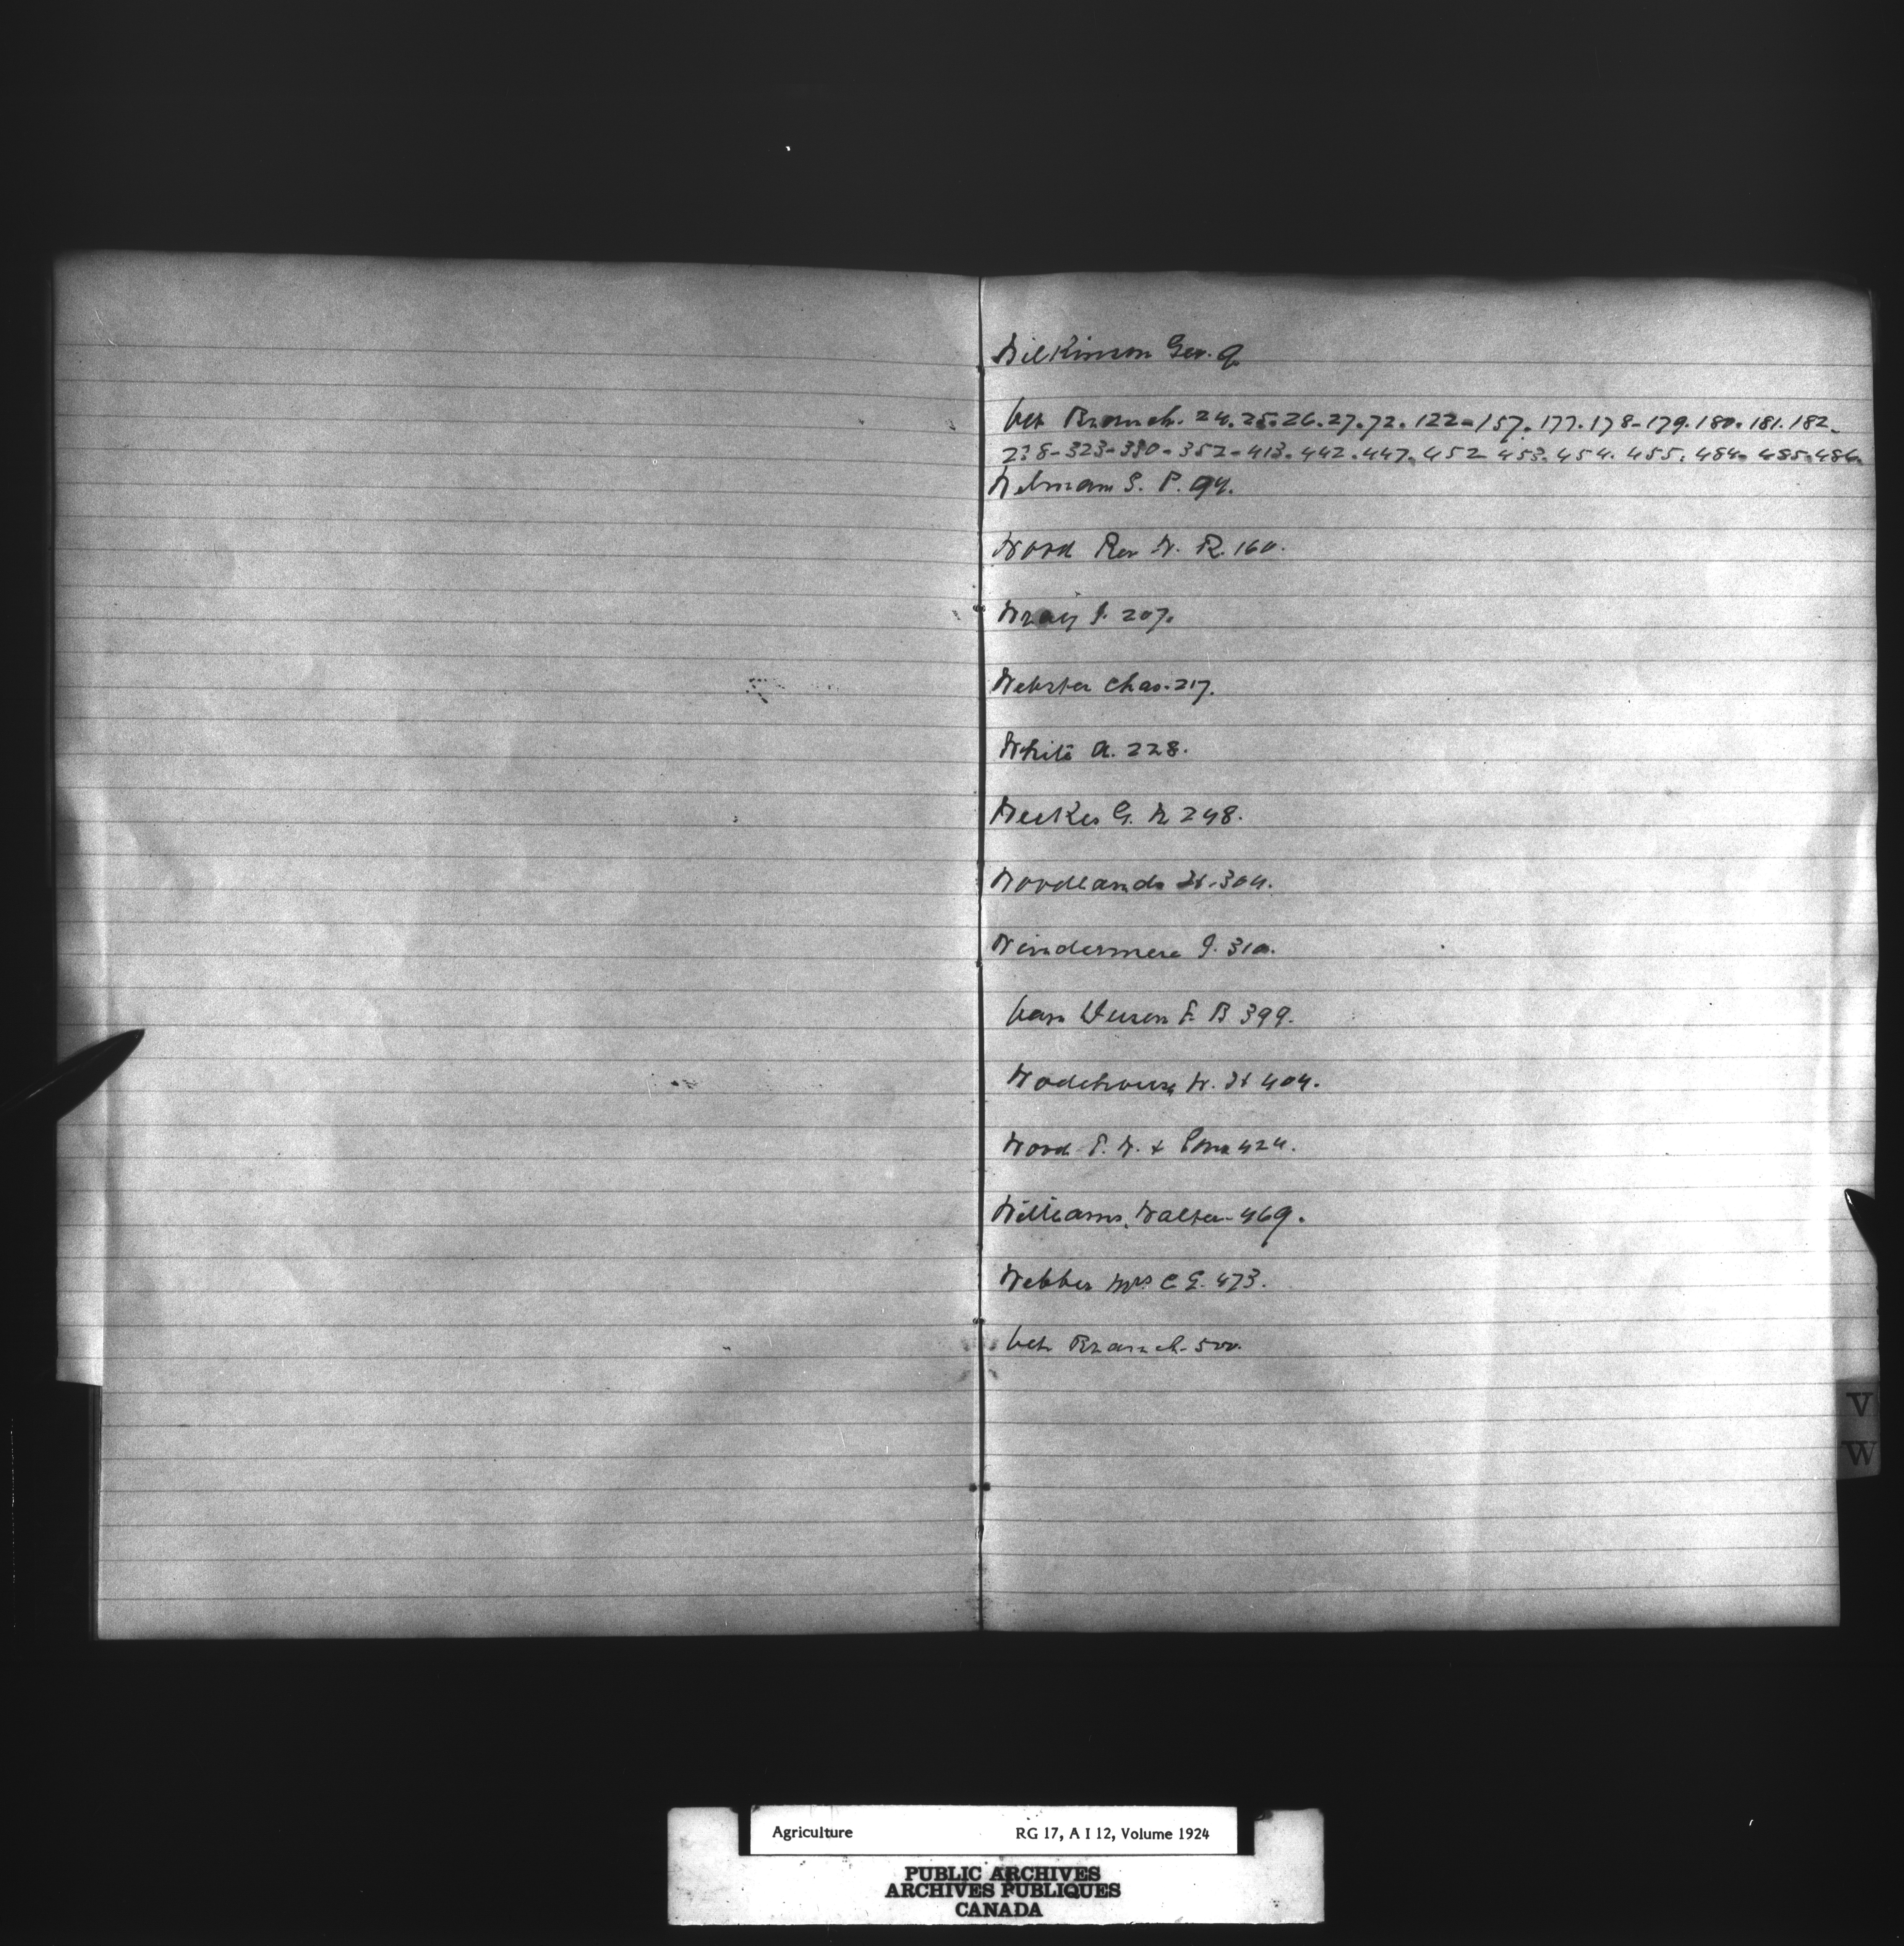 Wilkinson Geo. 9
Vet Branch. 24. 25. 26. 27. 72. 122-157. 177. 178-179. 180. 181. 182-
238-323-330-352-413. 442. 447. 452 453. 454. 455. 484. 485. 486.
Welman S. P. 94.
Wood Rev W. R. 160.
Wray J. 207.
Webster Chas. 217.
White A. 228.
Weekes G. N 248.
Woodlands 304.
Windermere J. 310.
Van Dusen F. B 399.
Wodehouse W. H 404.
Wood T. W. & Sons 424.
Williams, Walter-469.
Webber Mrs C. E. 473.
Vet Branch-500.
V
W
Agriculture RG 17, A I 12, Volume 1924
PUBLIC ARCHIVES
ARCHIVES PUBLIQUES
CANADA